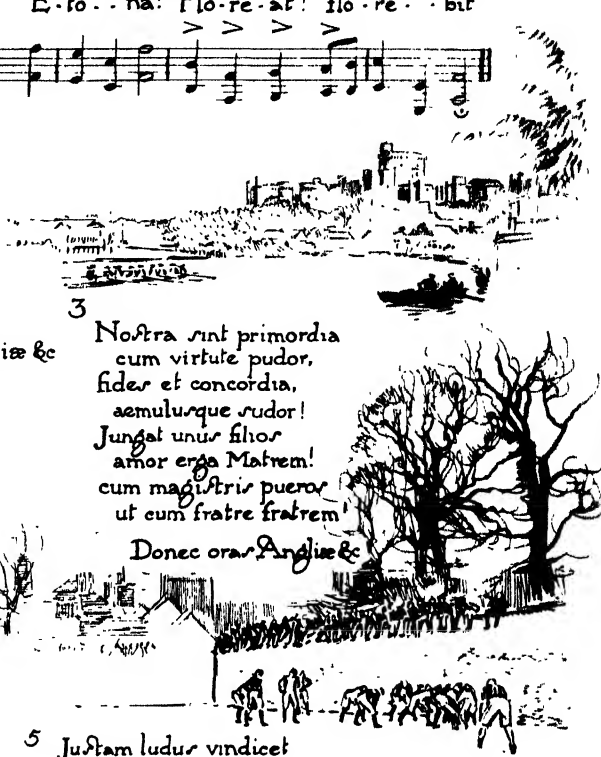 E-to - - na: Flo-re-at! flo-re - - bit
3
Nostra sint primordia
cum virtute pudor,
fides et concordia,
aemulusque sudor!
Jungat unus filios
amor erga Matrem!
cum magistris pueros
ut cum fratre fratrem!
iæ &c
Donec oras Angliæ &c
5
Justam ludus vindicet